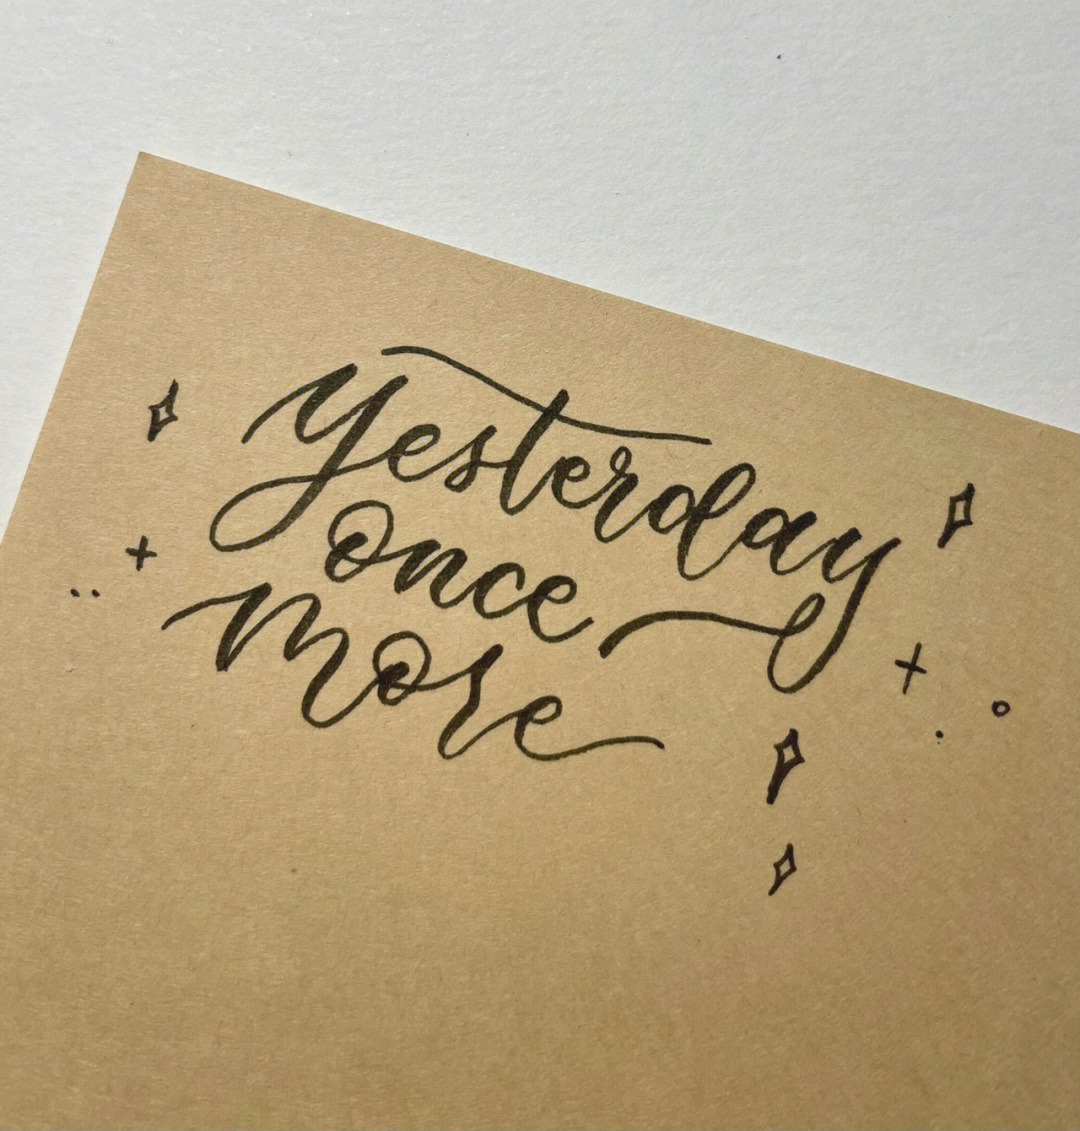 Yesterday
once
more